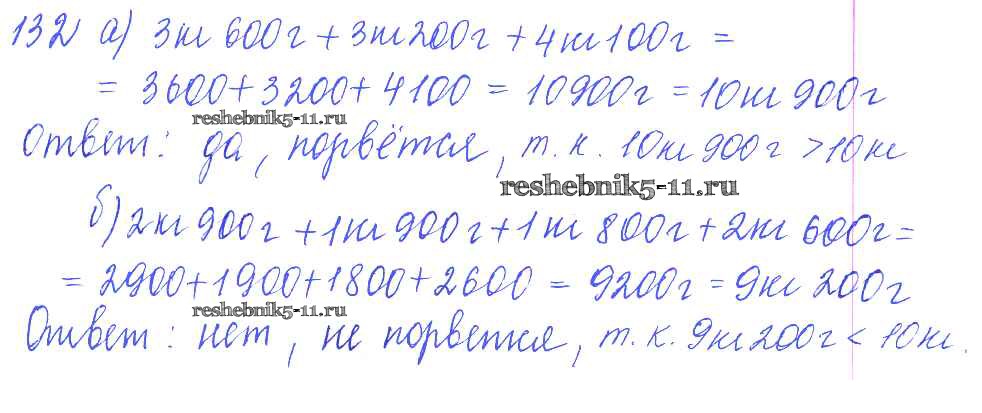 132 а) 3кг 600г + 3кг 200г + 4кг 100г =
= 3600 + 3200 + 4100 = 10900г = 10кг 900г
reshebnik5-11.ru
Ответ: да, порвётся, т.к. 10кг 900г > 10кг
reshebnik5-11.ru
б) 2кг 900г + 1кг 900г + 1кг 800г + 2кг 600г =
= 2900 + 1900 + 1800 + 2600 = 9200г = 9кг 200г
reshebnik5-11.ru
Ответ: нет, не порвется, т.к. 9кг 200г < 10кг.